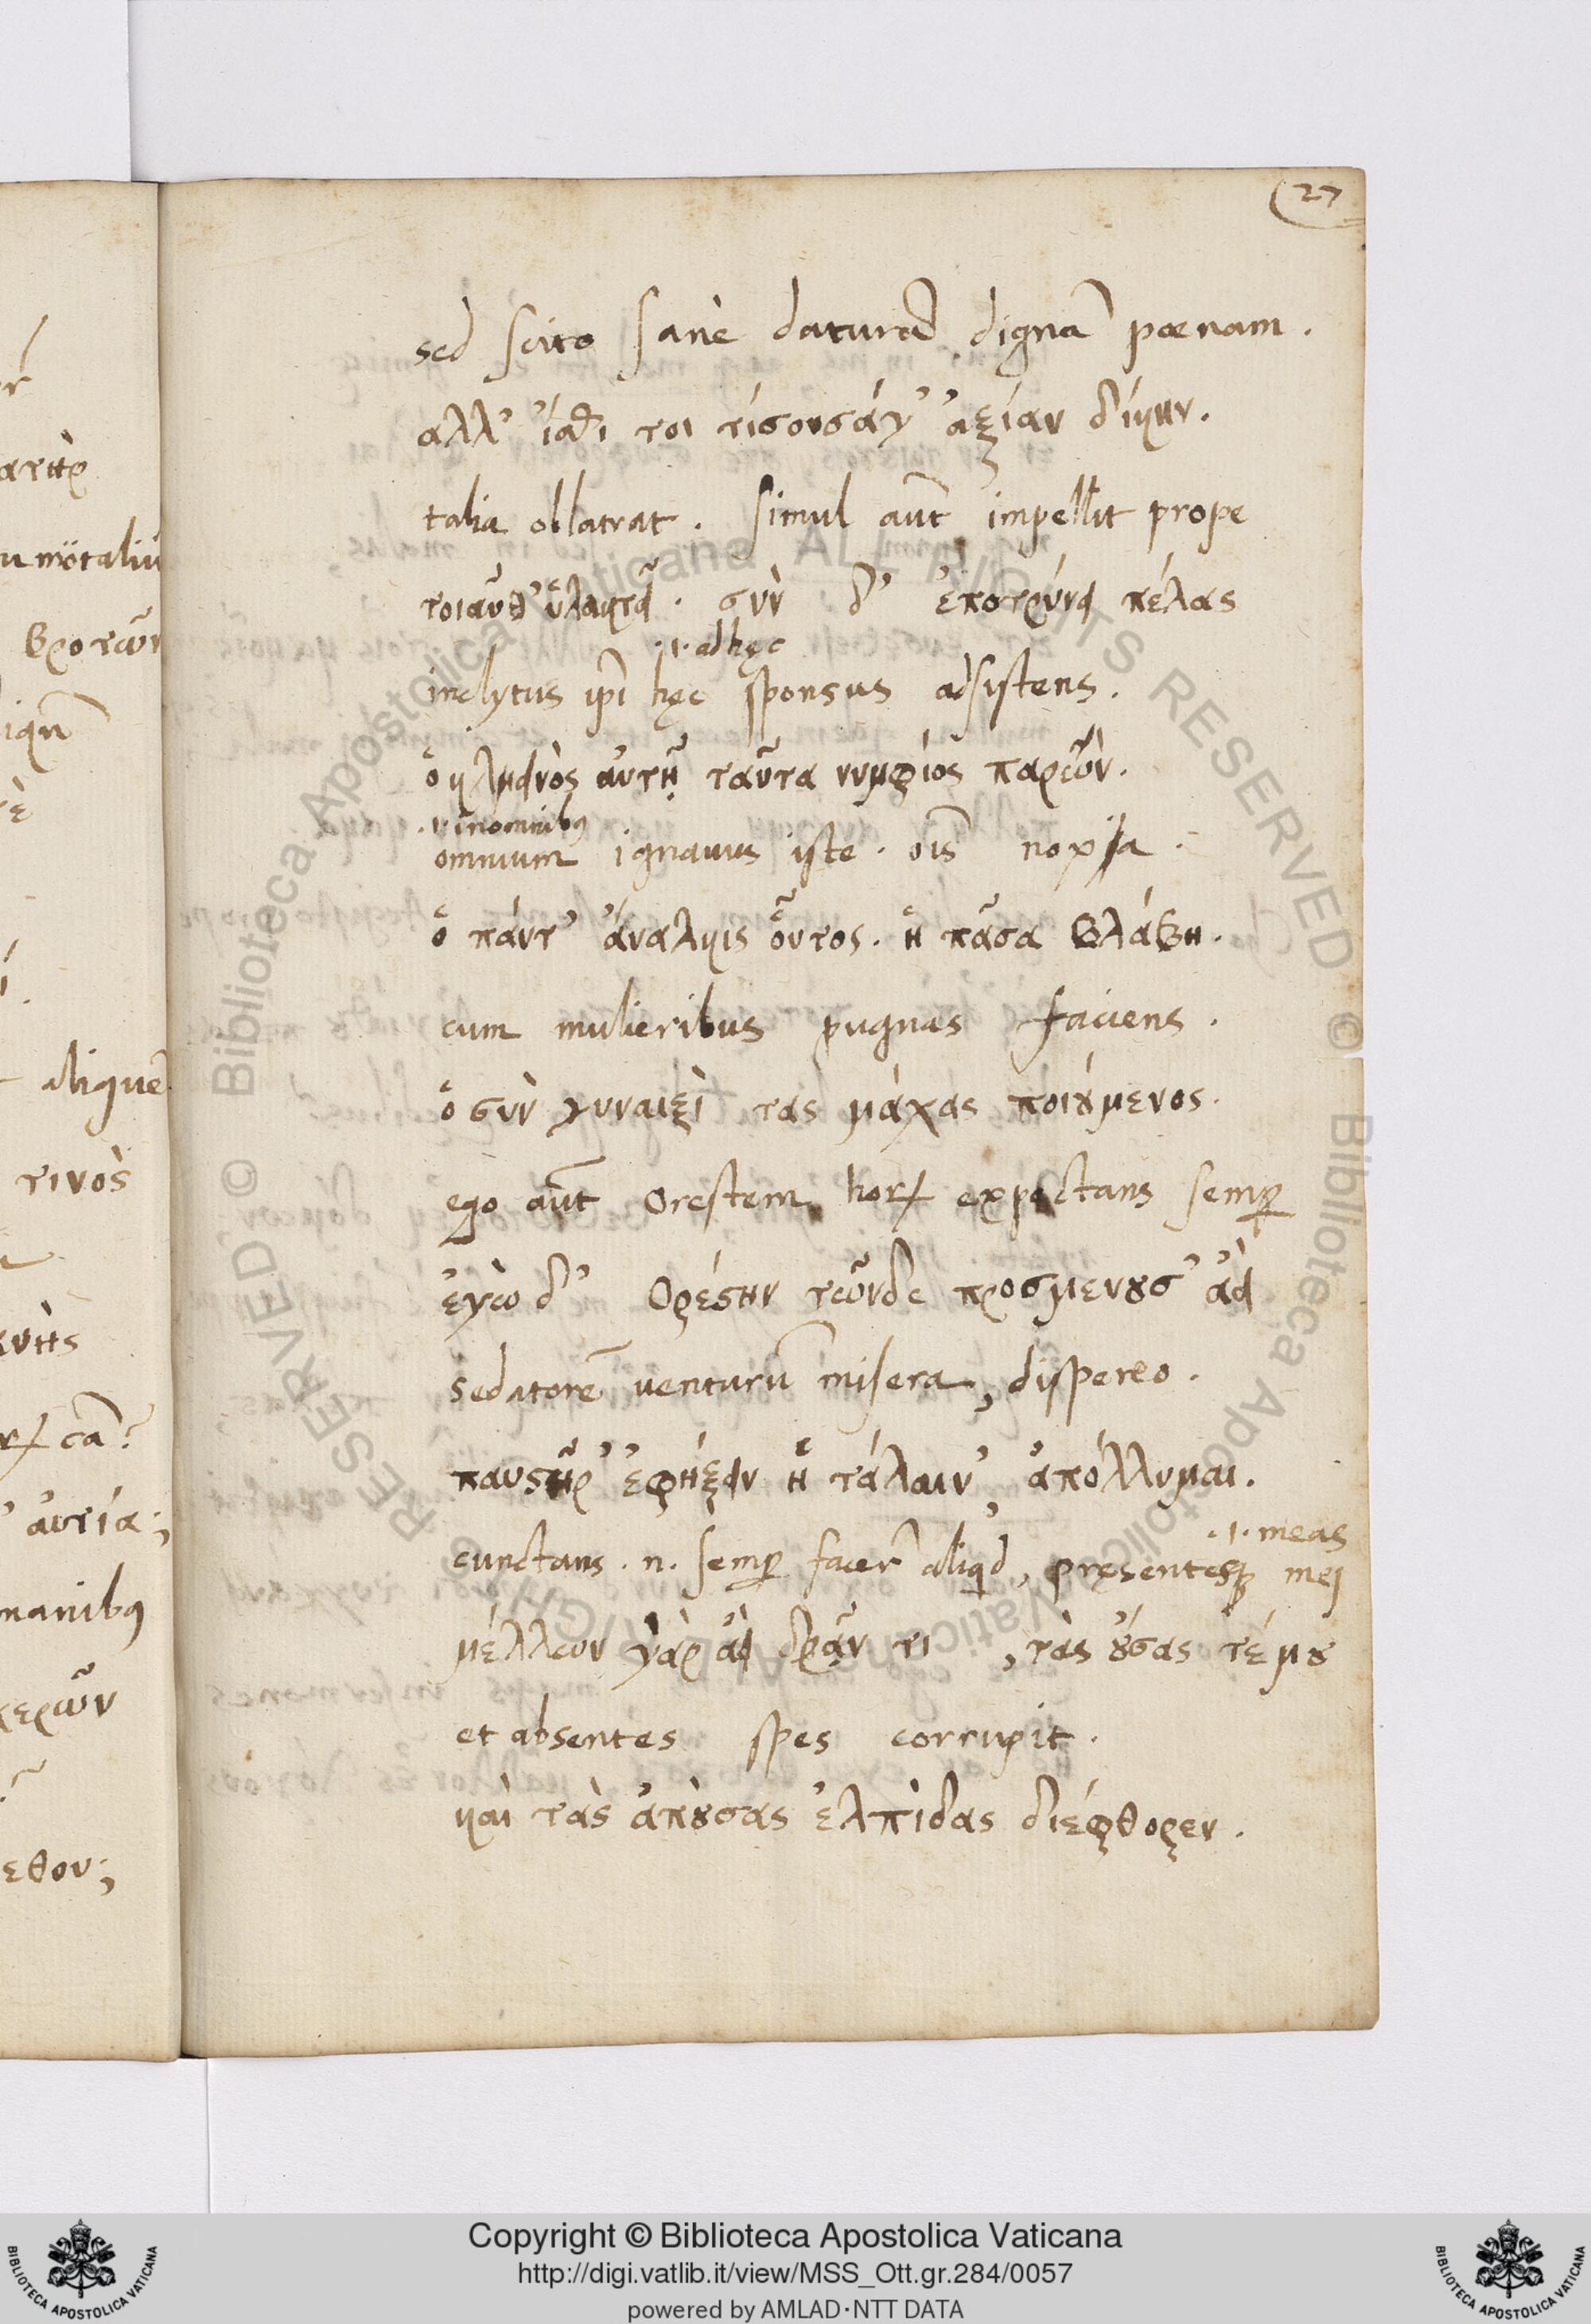 27
sed scito sanè daturā dignā poenam.
αλλ' ἴσθι τοι τίσουσάγ' ἀξίαν δίκην.
talia oblatrat. simul aūt impellit prope
τοιαῦθ' ὑλακτεῖ. σὺν δ' ἐποτρύνει πέλας
.i. ad hęc
inclytus ipī hęc sponsus adsistens.
ὁ κλεινὸς αὐτῆ ταῦτα νυμφίος παρὼν.
.i. in omnibꝰ
omnium ignavus iste. oīs noxa.
ὁ πάντ' ἄναλκις οὗτος. ἡ πᾶσα βλάβη.
cum mulieribus pugnas faciens.
ὁ σὺν γυναιξὶ τας μάχας ποιούμενος.
ego aūt Orestem horꝝ expectans semꝑ
ἐγὼ δ' Ορέστην τῶνδε προσμενουσ' ἀεὶ
sedatorē venturū misera, dispereo.
παυστῆρ' ἐφήξειν ἡ τάλαιν', ἀπόλλυμαι.
.i. meas
cunctans .n. semꝑ facer̄ aliqd, pręsentesqꝫ mei
μέλλων γὰρ ἀεὶ δρᾷν τι, τὰς οὔσας τέ μου
et absentes spes corrupit.
καὶ τὰς ἀπούσας ἐλπίδας διέφθορεν.
Copyright © Biblioteca Apostolica Vaticana
http://digi.vatlib.it/view/MSS_Ott.gr.284/0057
powered by AMLAD·NTT DATA